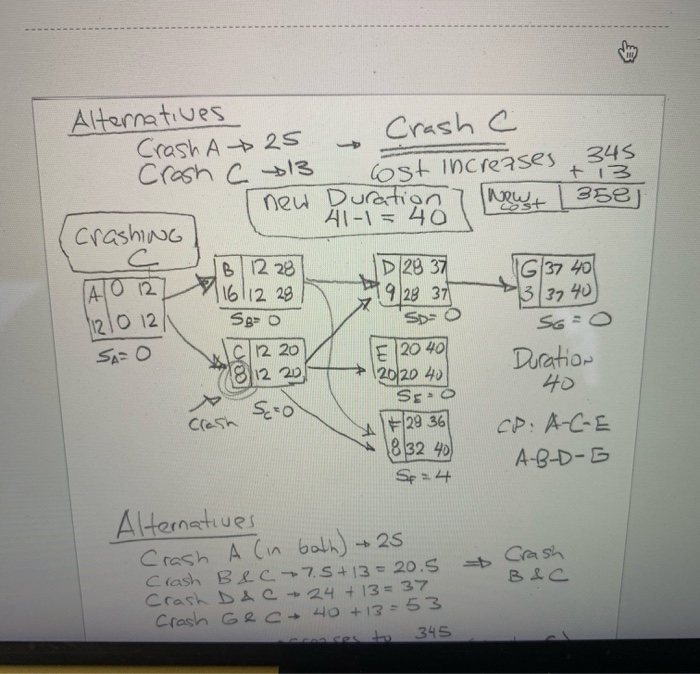 Alternatives
Crash A → 25 → Crash C
Crash C → 13 Cost increases 345
+ 13
new Duration New cost 358
41-1 = 40
Crashing
C
A 0 12
12 0 12
SA= 0
B 12 28
16 12 28
SB= 0
D 28 37
9 28 37
SD= 0
G 37 40
3 37 40
SG = 0
C 12 20
8 12 20
Sc=0
Crash
E 20 40
20 20 40
SE=0
Duration
40
F 28 36
8 32 40
SF = 4
CP: A-C-E
A-B-D-G
Alternatives
Crash A (in both) → 25
Crash B & C → 7.5+13 = 20.5 ⇒ Crash
Crash D & C → 24 + 13 = 37 B & C
Crash G & C → 40 +13 = 53
to 345